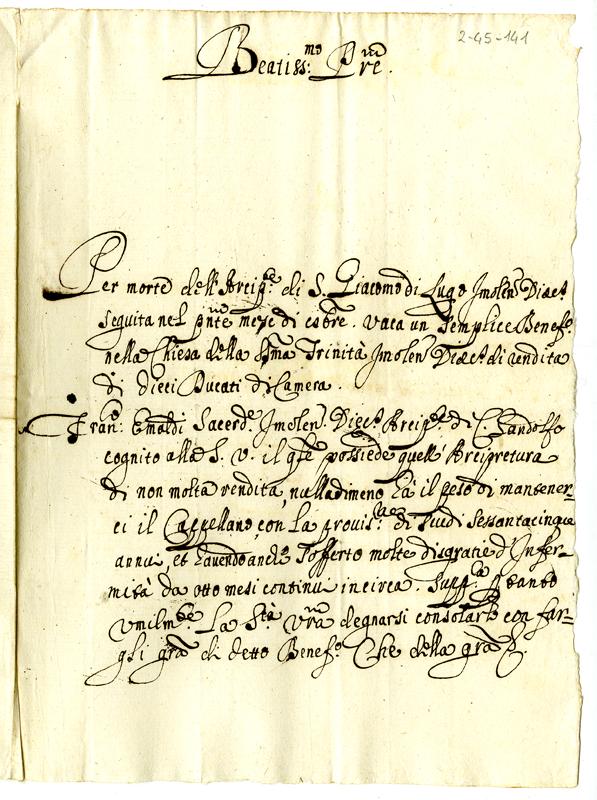 2-45-141
Beatiss:mo Pre.
Per morte dell' Arcip.te di S. Giacomo di Lugo Imolen: Diæc.s
seguita nel pnte mese di 8bre. vaca un semplice Benef.o
nella Chiesa della SSma Trinità Imolen: Diæc.s di rendita
di dieci Ducati di Camera.
Fran: Emaldi Sacerd.e Imolen: Diec.s Arcip.e di C. Gandolfo
cognito alla S. V. il qle possiede quell' Arcipretura
di non molta rendita, nulladimeno hà il peso di mantener=
ci il Cappellano, con la provis.ne di scudi sessantacinque
annui, et havendo anche sofferto molte disgratie d' Infer=
mità da otto mesi continui incirca. Supp.ca
umilm.te La S.tà vra degnarsi consolarlo con far=
gli grã di detto Benef.o Che della grã